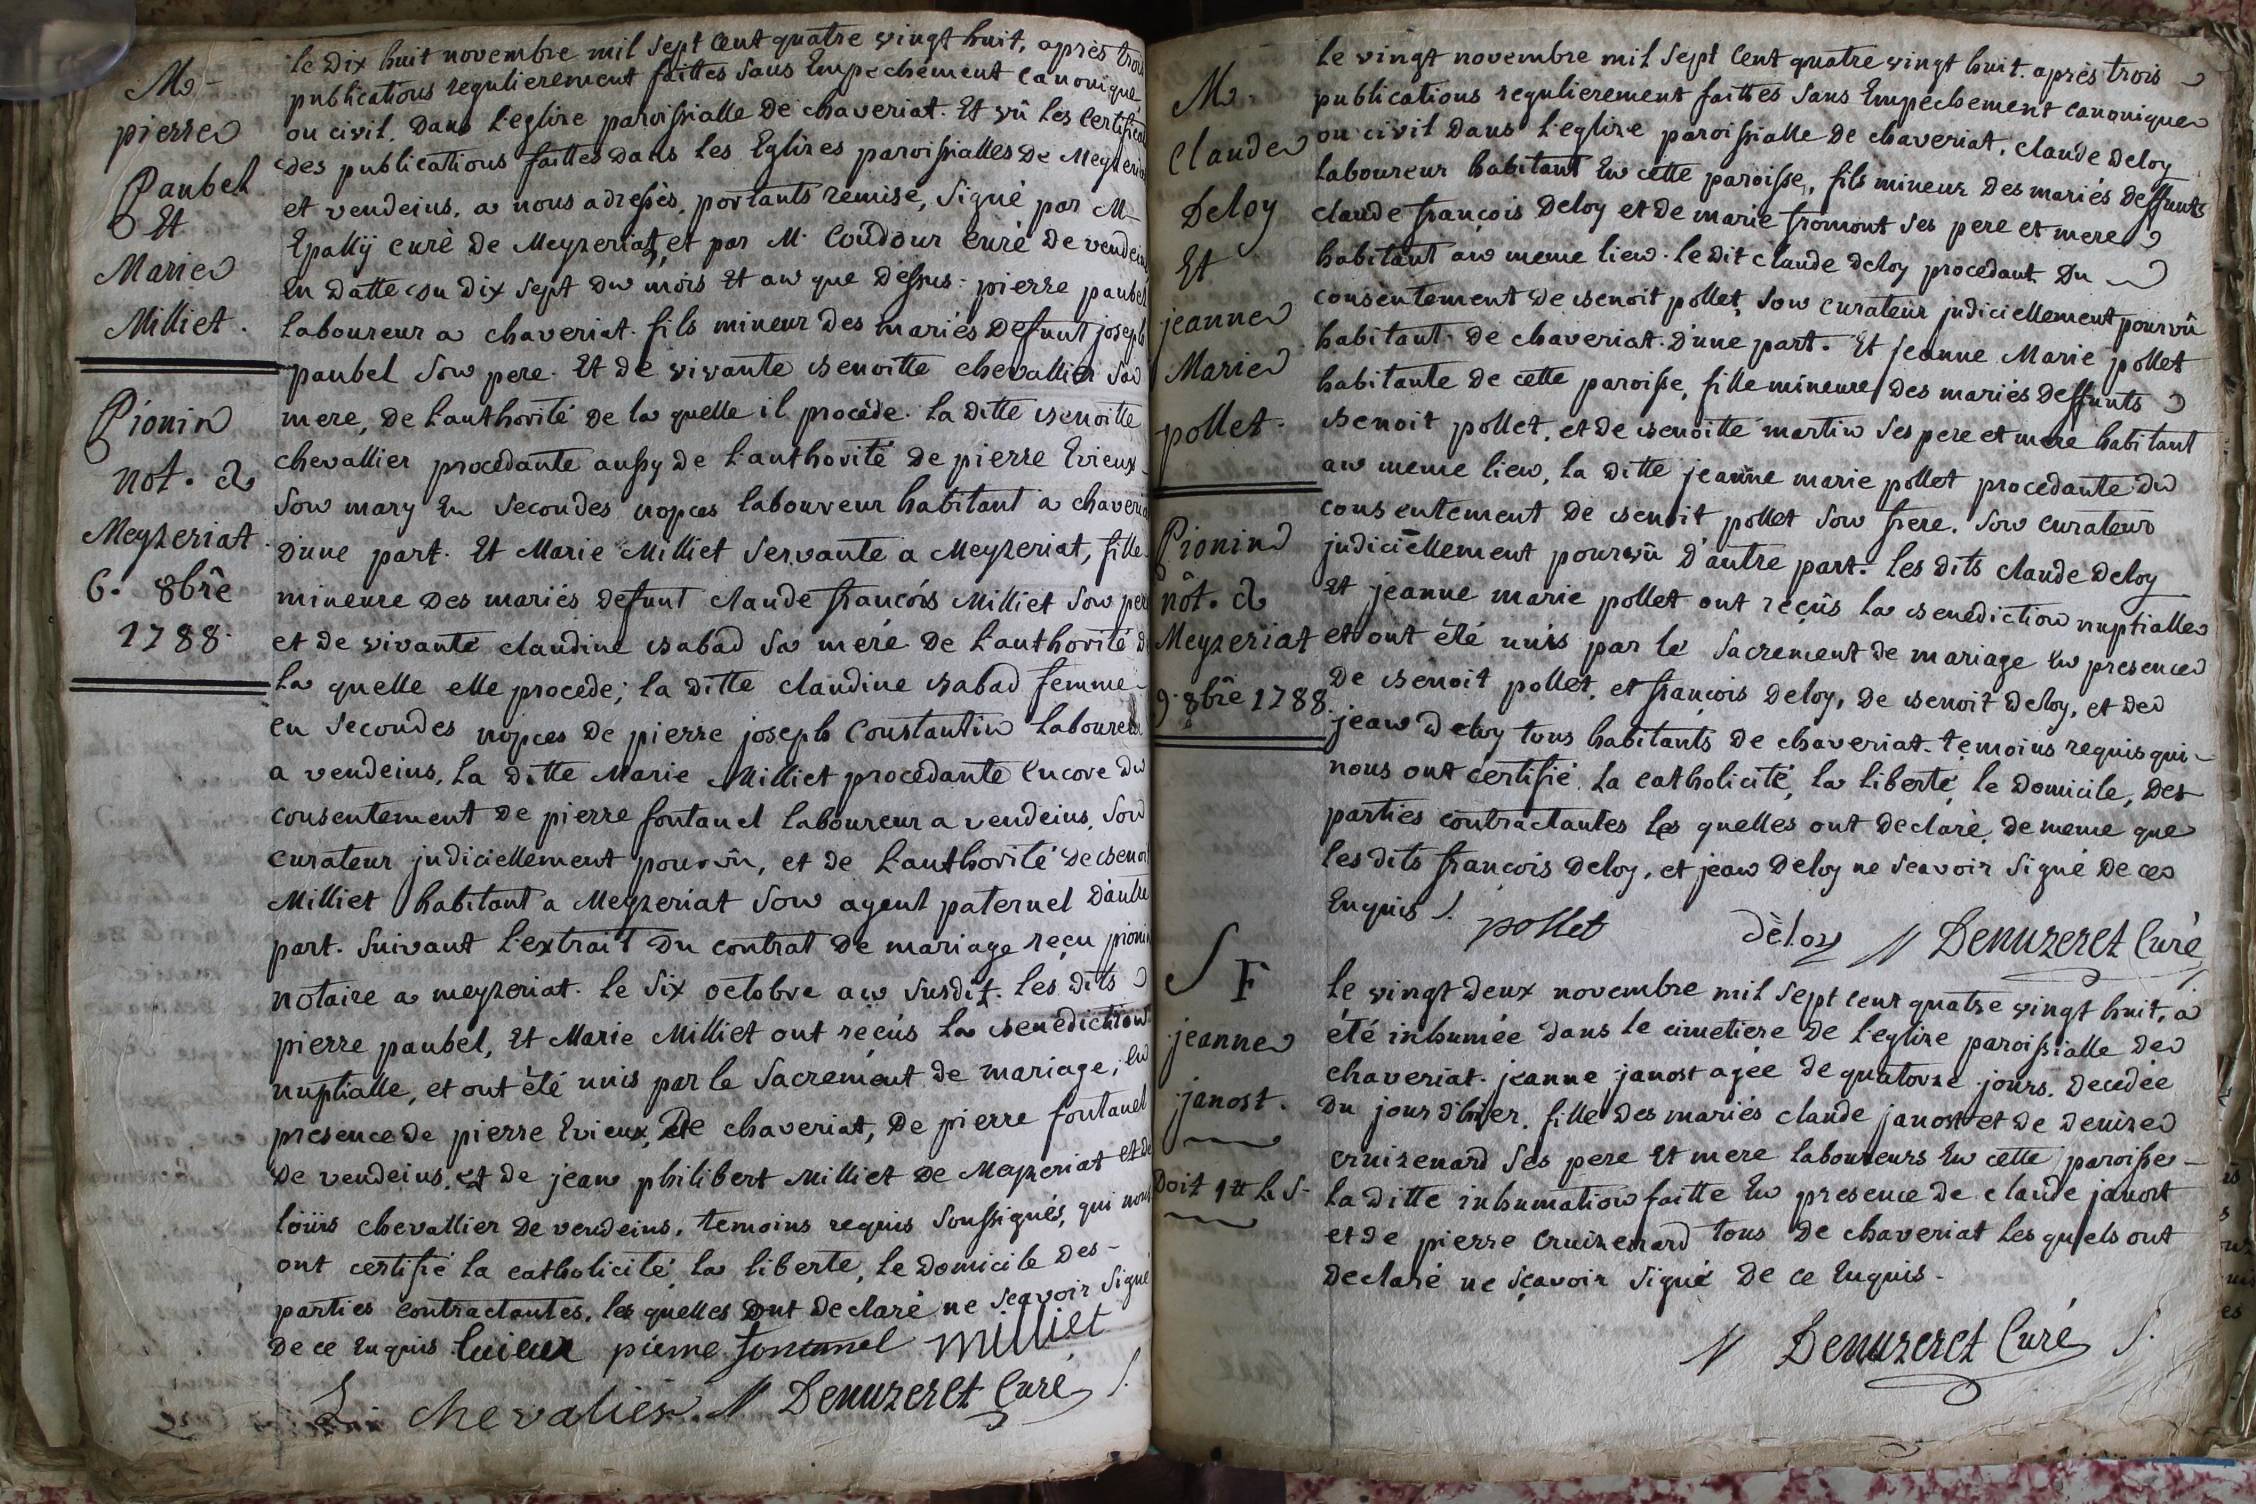 M.
pierre
Paubel
Et
Marie
Milliet.
Pionin
not. a
Meyzeriat.
6. 8bre
1788.
Le dix huit novembre mil sept cent quatre vingt huit, après trois
publications regulierement faittes sans Empechement canonique
ou civil. dans l'eglise paroissialle de chaveriat. Et vû les certificats
des publications faittes dans les Eglises paroissialles de Meyzeriat
et vendeins, a nous adressés, portants remise, signé par M-
Epally curé de Meyzeriat, et par M. Coudour curé de vendeins
En datte du dix sept du mois Et an que dessus: pierre paubel
laboureur a chaveriat. fils mineur des mariés defunt joseph
paubel son pere. Et de vivante benoitte chevallier sa
mere, de l'authorité de la quelle il procéde. la ditte benoitte
chevallier procedante aussy de l'authorité de pierre Evieux
son mary En secondes nopces laboureur habitant a chaveriat
d'une part. Et Marie Milliet servante a Meyzeriat, fille
mineure des mariés defunt claude françois Milliet son pere
et de vivante claudine babad sa mere de l'authorité de
la quelle elle procede; la ditte claudine babad femme
en secondes nopces de pierre joseph Constantin laboureur
a vendeins, la ditte Marie Milliet procedante Encore du
consentement de pierre fontanel laboureur a vendeins, son
curateur judiciellement pourvû, et de l'authorité de benoit
Milliet habitant a Meyzeriat son agent paternel d'autre
part. suivant l'extrait du contrat de mariage reçu pionin
notaire a meyzeriat. le six octobre an susdit. les dits
pierre paubel, Et Marie Milliet ont reçus la benediction
nuptialle, et ont été unis par le sacrement de mariage, En
presence de pierre Evieux, de chaveriat, de pierre fontanel
de vendeins, et de jean philibert Milliet de Meyzeriat et de
loüis chevallier de vendeins, temoins requis soussignés, qui nous
ont certifié la catholicité, la liberte, le domicile des-
parties contractantes, les quelles ont declaré ne sçavoir signé
de ce Enquis. Evieux pierre fontanel Milliet
L. chevalier. Denuzeret Curé
M.
Claude
Deloy
Et
jeanne
Marie
pollet.
Pionin
nôt. a
Meyzeriat
9. 8bre 1788.
Le vingt novembre mil sept cent quatre vingt huit. après trois
publications regulierement faittes sans Empechement canonique
ou civil dans l'eglise paroissialle de chaveriat, claude deloy
laboureur habitant En cette paroisse, fils mineur des mariés deffunts
claude françois deloy et de marie fromont ses pere et mere
habitant au meme lieu. le dit claude deloy procedant du
consentement de benoit pollet, son curateur judiciellement pourvû
habitant de chaveriat. d'une part. Et jeanne Marie pollet
habitante de cette paroisse, fille mineure des mariés deffunts
benoit pollet, et de benoitte martin ses pere et mere habitant
au meme lieu, la ditte jeanne marie pollet procedante du
consentement de benoit pollet son frere. son curateur
judiciellement pourvû d'autre part. les dits claude deloy
Et jeanne marie pollet ont reçûs la benediction nuptialle
et ont été unis par le sacrement de mariage En presence
de benoit pollet, et françois deloy, de benoit deloy, et de
jean deloy tous habitants de chaveriat. temoins requis qui
nous ont certifié la catholicité, la liberté, le domicile, des
parties contractantes les quelles ont declaré, de meme que
les dits françois deloy, et jean deloy ne sçavoir signé de ce
Enquis. pollet dèloy Denuzeret Curé
S F
jeanne
janost.
Doit
Le vingt deux novembre mil sept cent quatre vingt huit, a
été inhumée dans le cimetiere de l'eglise paroissialle de
chaveriat. jeanne janost agée de quatorze jours. decedée
du jour d'hier. fille des mariés claude janost et de denise
cruizenard ses pere Et mere laboureurs En cette paroisse
la ditte inhumation faitte En presence de claude janost
et de pierre cruizenard tous de chaveriat les quels ont
declaré ne sçavoir signé de ce Enquis.
Denuzeret Curé